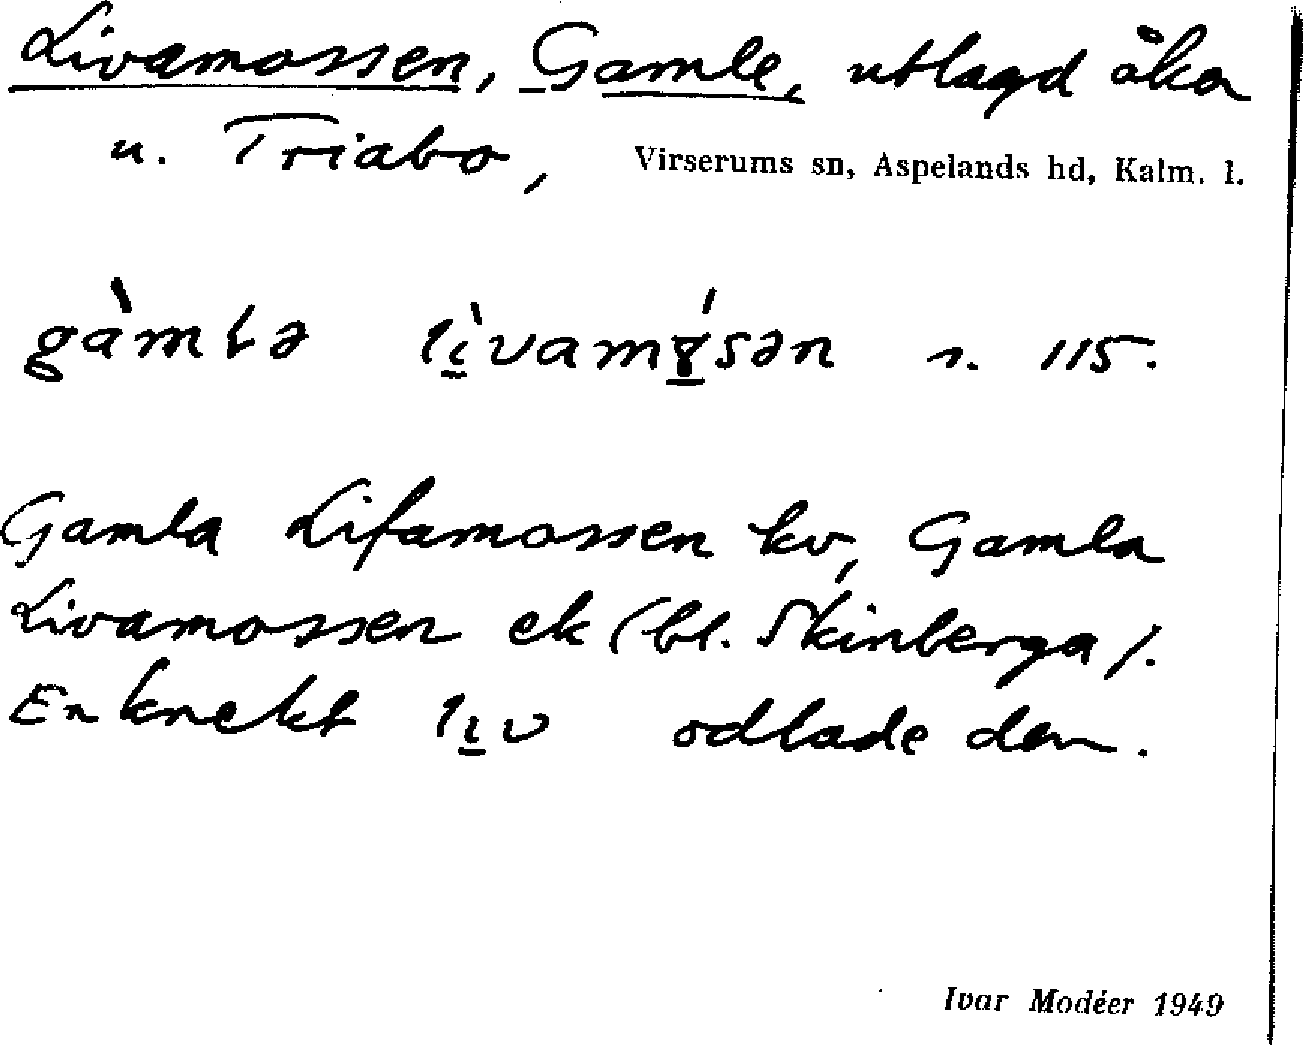 Livamossen, Gamle, utlagd åka
u. Triabo, Virserums sn, Aspelands hd, Kalm. l.
gàmlə lìvamɤ́sən n. 115.
Gamla Lifamossen kv, Gamla
Livamossen ek (bl. Skinberga).
En knekt liv odlade den.
Ivar Modéer 1949